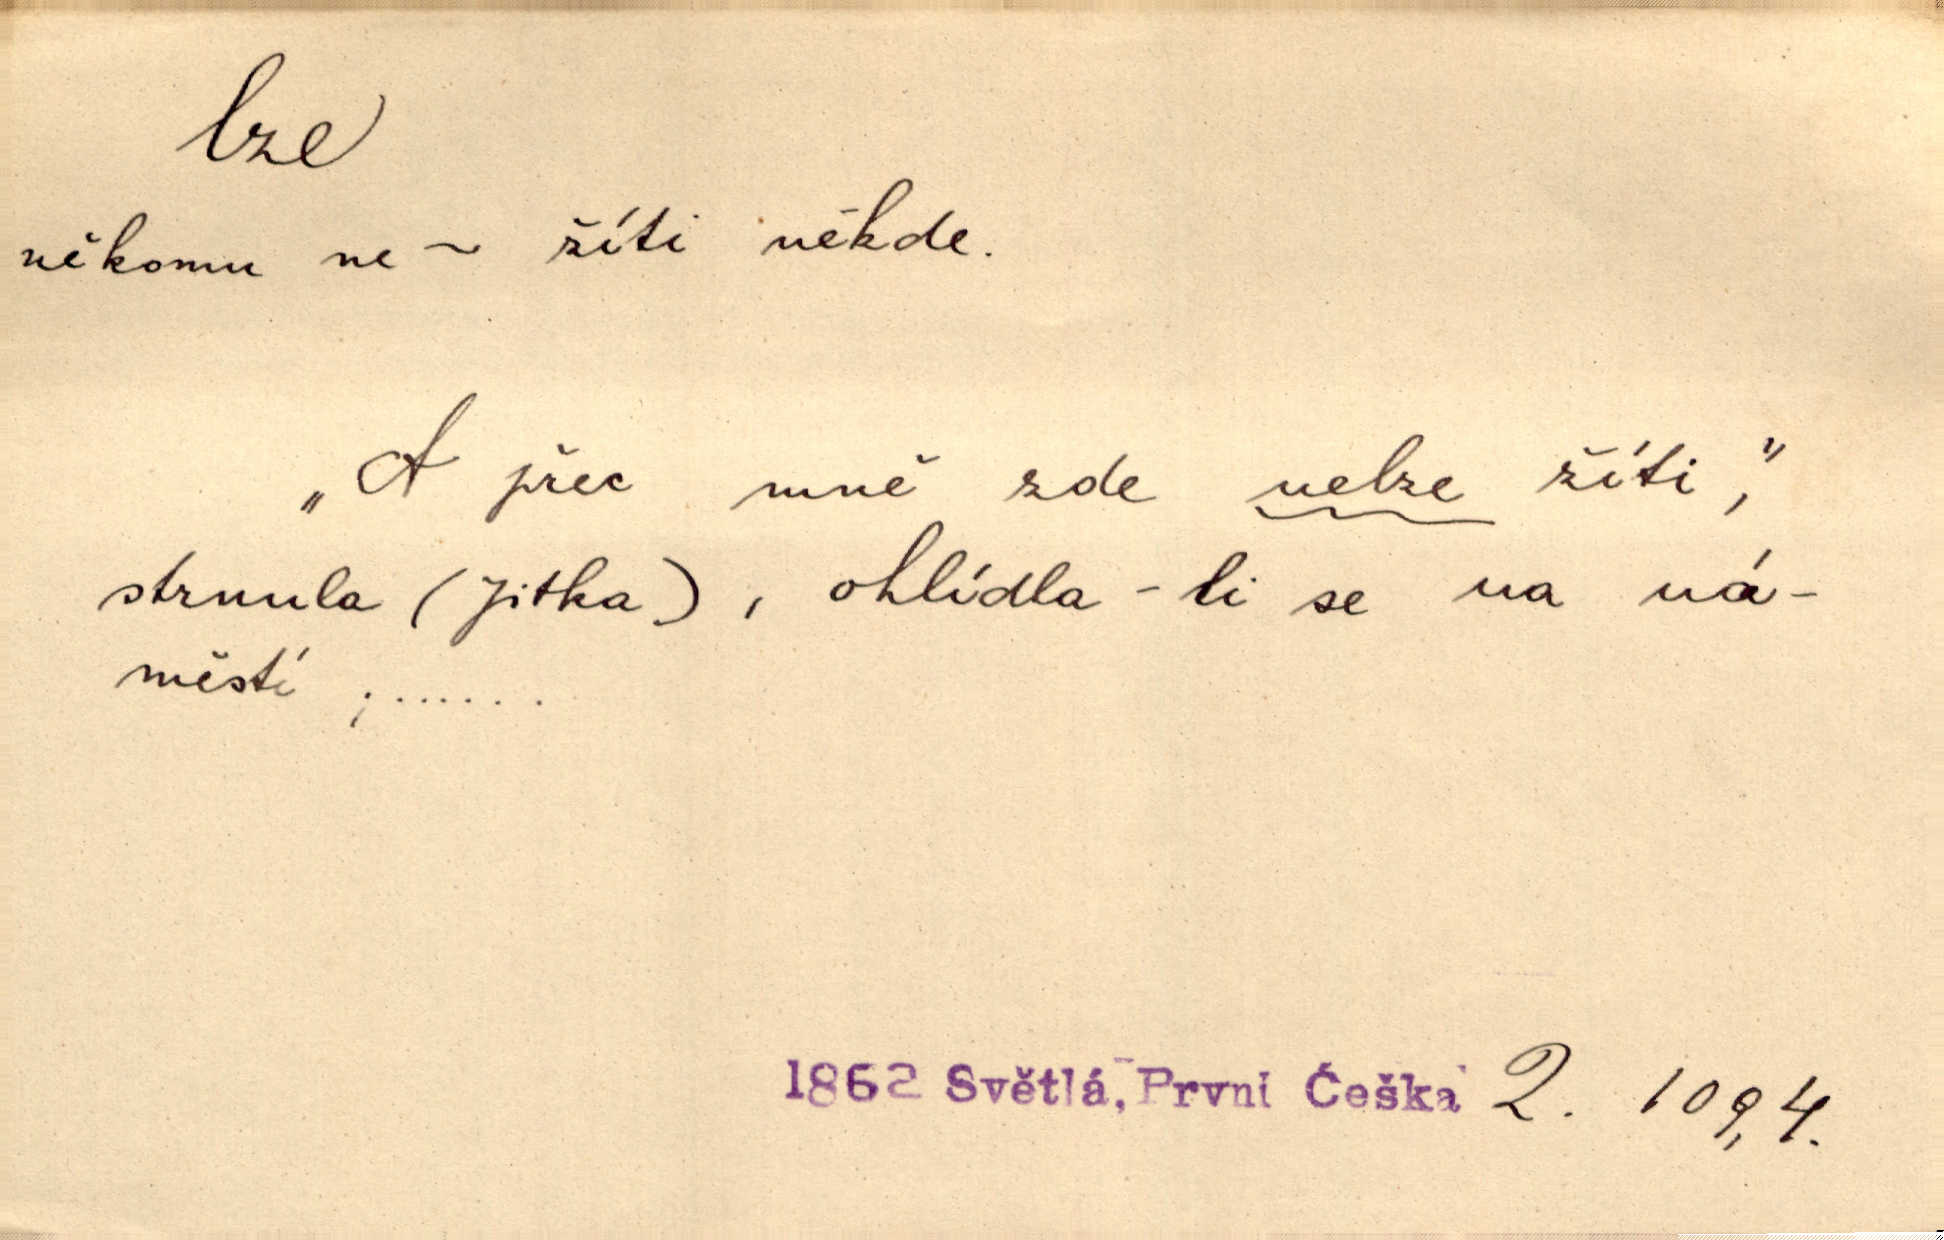 lze
někomu ne ~ žíti někde.
„A přec mně zde nelze žíti,"
strnula (Jitka), ohlídla-li se na ná-
městí ;.......
1862 Světlá, První Češka 2. 109,4.